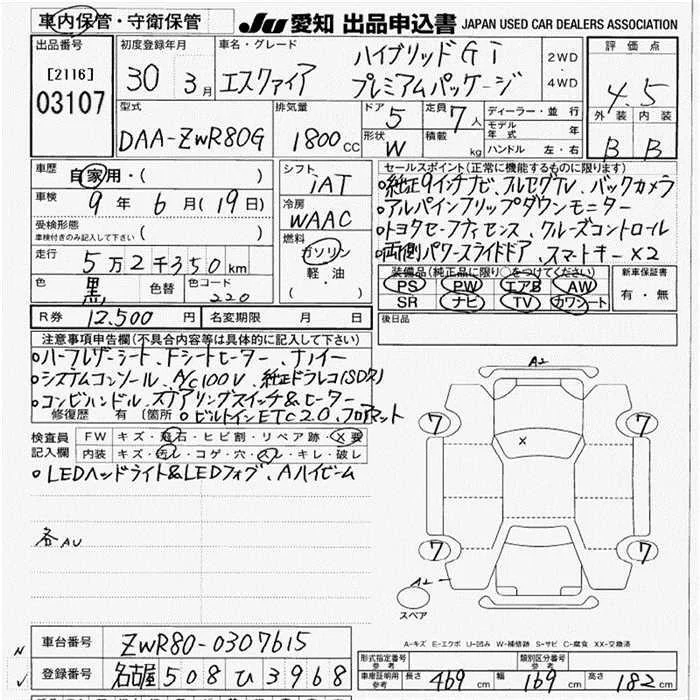 車内保管・守衛保管
JU 愛知 出品申込書 JAPAN USED CAR DEALERS ASSOCIATION
出品番号
[2116]
03107
初度登録年月
30 3月
車名・グレード
エスクァイア
ハイブリッドGi
プレミアムパッケージ
2WD
・
4WD
評価点
4.5
外装 内装
B B
型式
DAA-ZWR80G
排気量
1800cc
ドア 5
形状 W
定員 7人
積載 kg
ディーラー・並行
モデル年式 年
ハンドル 左・右
車歴
自家用・( )
車検
9年 6月(19日)
受検形態
車検付きのみ記入して下さい ( )
走行
5万2千350km
色 黒 色替 色コード 220
シフト
iAT
冷房
WAAC
燃料
ガソリン
軽・油
( )
セールスポイント(正常に機能するものに限ります)
○純正9インチナビ、フルセグTV、バックカメラ
○アルパインフリップダウンモニター
○トヨタセーフティセンス、クルーズコントロール
○両側パワースライドドア、スマートキー×2
装備品(純正品に限り○をつけてください)
PS PW エアB AW
SR ナビ TV カワシート
新車保証書
有・無
R券 12,500円 名変期限 月 日
後日品
注意事項申告欄(不具合内容等は具体的に記入して下さい)
○ハーフレザーシート、Fシートヒーター、ナノイー
○システムコンソール、A/C100V、純正ドラレコ(SD欠)
○コンビハンドル、ステアリングスイッチ&ヒーター
修復歴 有 〔箇所 ○ビルトインETC2.0、フロアマット
検査員
記入欄
FW キズ・飛石・ヒビ割・リペア跡・X要
内装 キズ・汚レ・コゲ・穴・スレ・キレ・破レ
○LEDヘッドライト&LEDフォグ、Aハイビーム
各AU
A2
7 7
x
7 7
A2
スペア
A-キズ E-エクボ U-凹み W-補修跡 S-サビ C-腐食 XX-交換済
車台番号 ZWR80-0307615
登録番号 名古屋 508 ひ 3968
形式指定番号
参考
類別区分番号
参考
車庫証明用
参考
長さ 469cm 幅 169cm 高さ 182cm